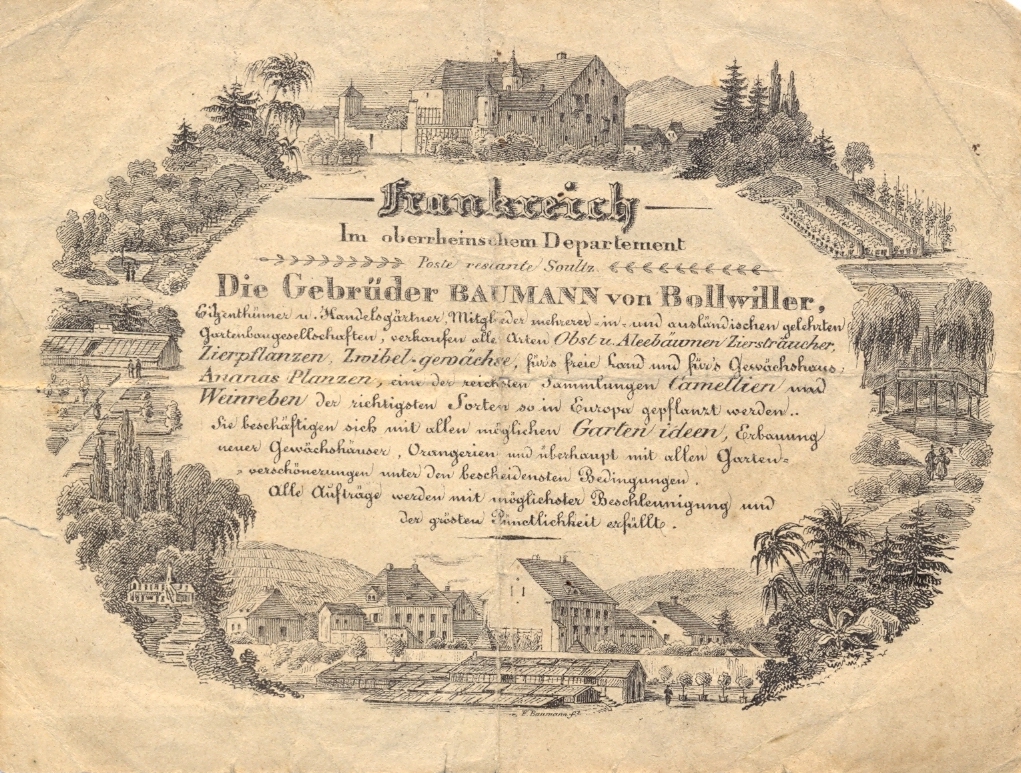 Frankreich
Im oberrheinschem Departement
Poste restante Soultz.
Die Gebrüder BAUMANN von Bollwiller,
Eigenthümer u. Handelsgärtner, Mitglieder mehrerer in- und ausländischen gelehrten
Gartenbaugesellschaften, verkaufen alle Arten Obst u. Aleebäumen Ziersträucher,
Zierpflanzen, Zwibel-gewächse, für's freie Land und für's Gewächshaus;
Ananas Planzen, eine der reichsten Sammlungen Camellien und
Weinreben der richtigsten Sorten so in Europa gepflanzt werden..
Sie beschäftigen sich mit allen möglichen Garten ideen, Erbauung
neuer Gewächshäuser, Orangerien und überhaupt mit allen Garten=
=verschönerungen unter den bescheidensten Bedingungen.
Alle Aufträge werden mit möglichster Beschleunigung und
der grösten Pünctlichkeit erfüllt.
F. Baumann